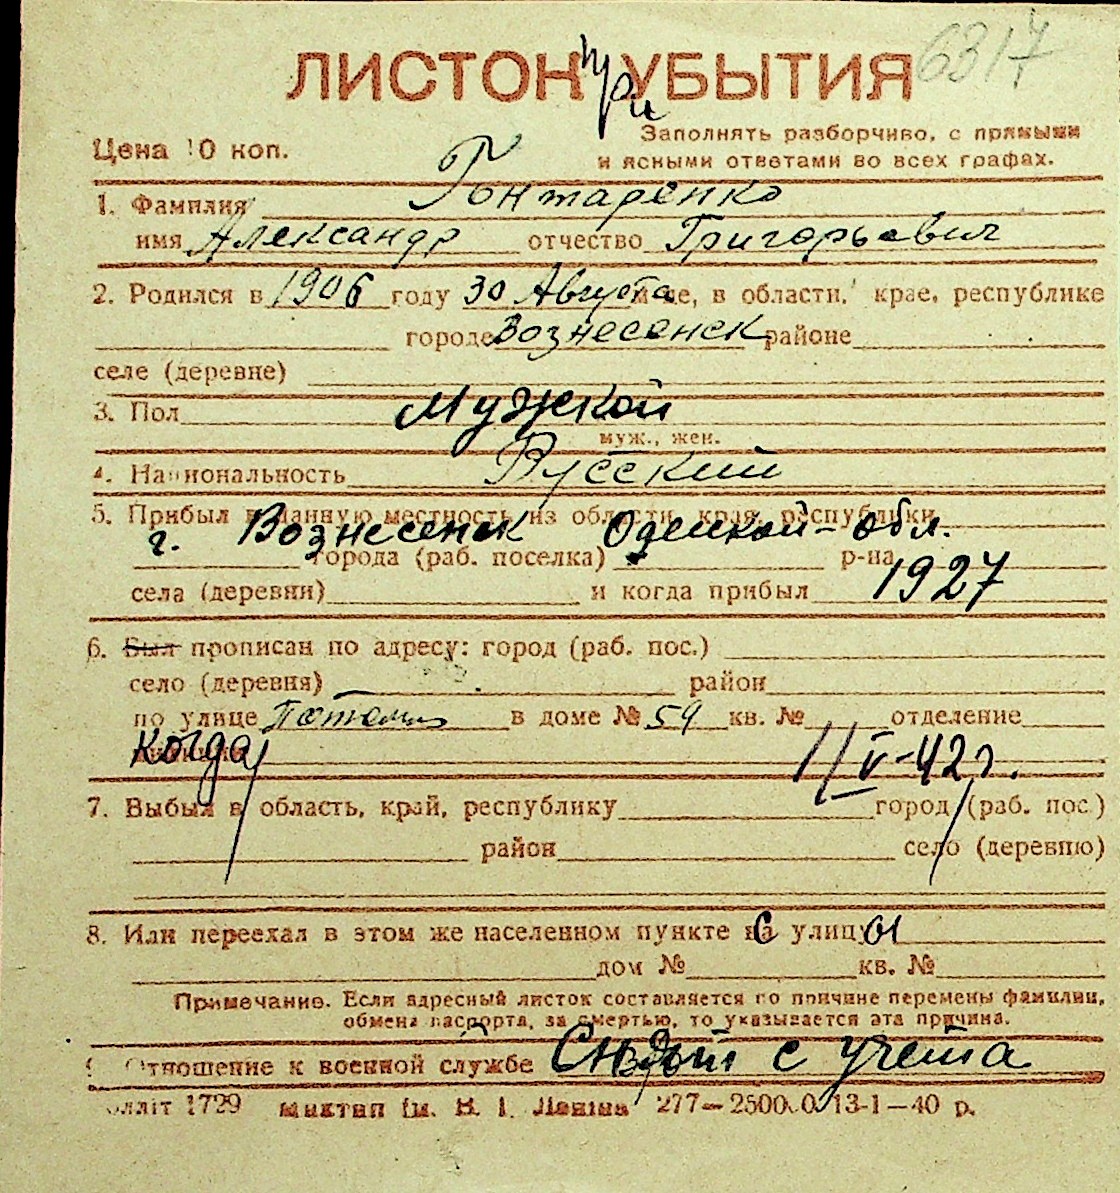 6317
ЛИСТОК при УБЫТИЯ
Цена 10 коп.
Заполнять разборчиво, с прямыми
и ясными ответами во всех графах.
1. Фамилия Гонтаренко
имя Александр отчество Григорьевич
2. Родился в 1906 году 30 Августа м-це, в области, крае, республике
городе Вознесенск районе
селе (деревне)
3. Пол Мужской
муж., жен.
4. Национальность Русский
5. Прибыл в данную местность из области, края, республики
г. Вознесенск Одесской обл.
города (раб. поселка) р-на
села (деревни) и когда прибыл 1927
6. Был прописан по адресу: город (раб. пос.)
село (деревня) район
по улице в доме № 59 кв. № отделение
когда 1/V-42 г.
7. Выбыл в область, край, республику город (раб. пос.)
район село (деревню)
8. Или переехал в этом же населенном пункте с улицы
дом № кв. №
Примечание. Если адресный листок составляется по причине перемены фамилии,
обмена паспорта, за смертью, то указывается эта причина.
9. Отношение к военной службе Снят с учета
Полліт 1729 им. В. І. Леніна 277—25000. 13-1—40 р.